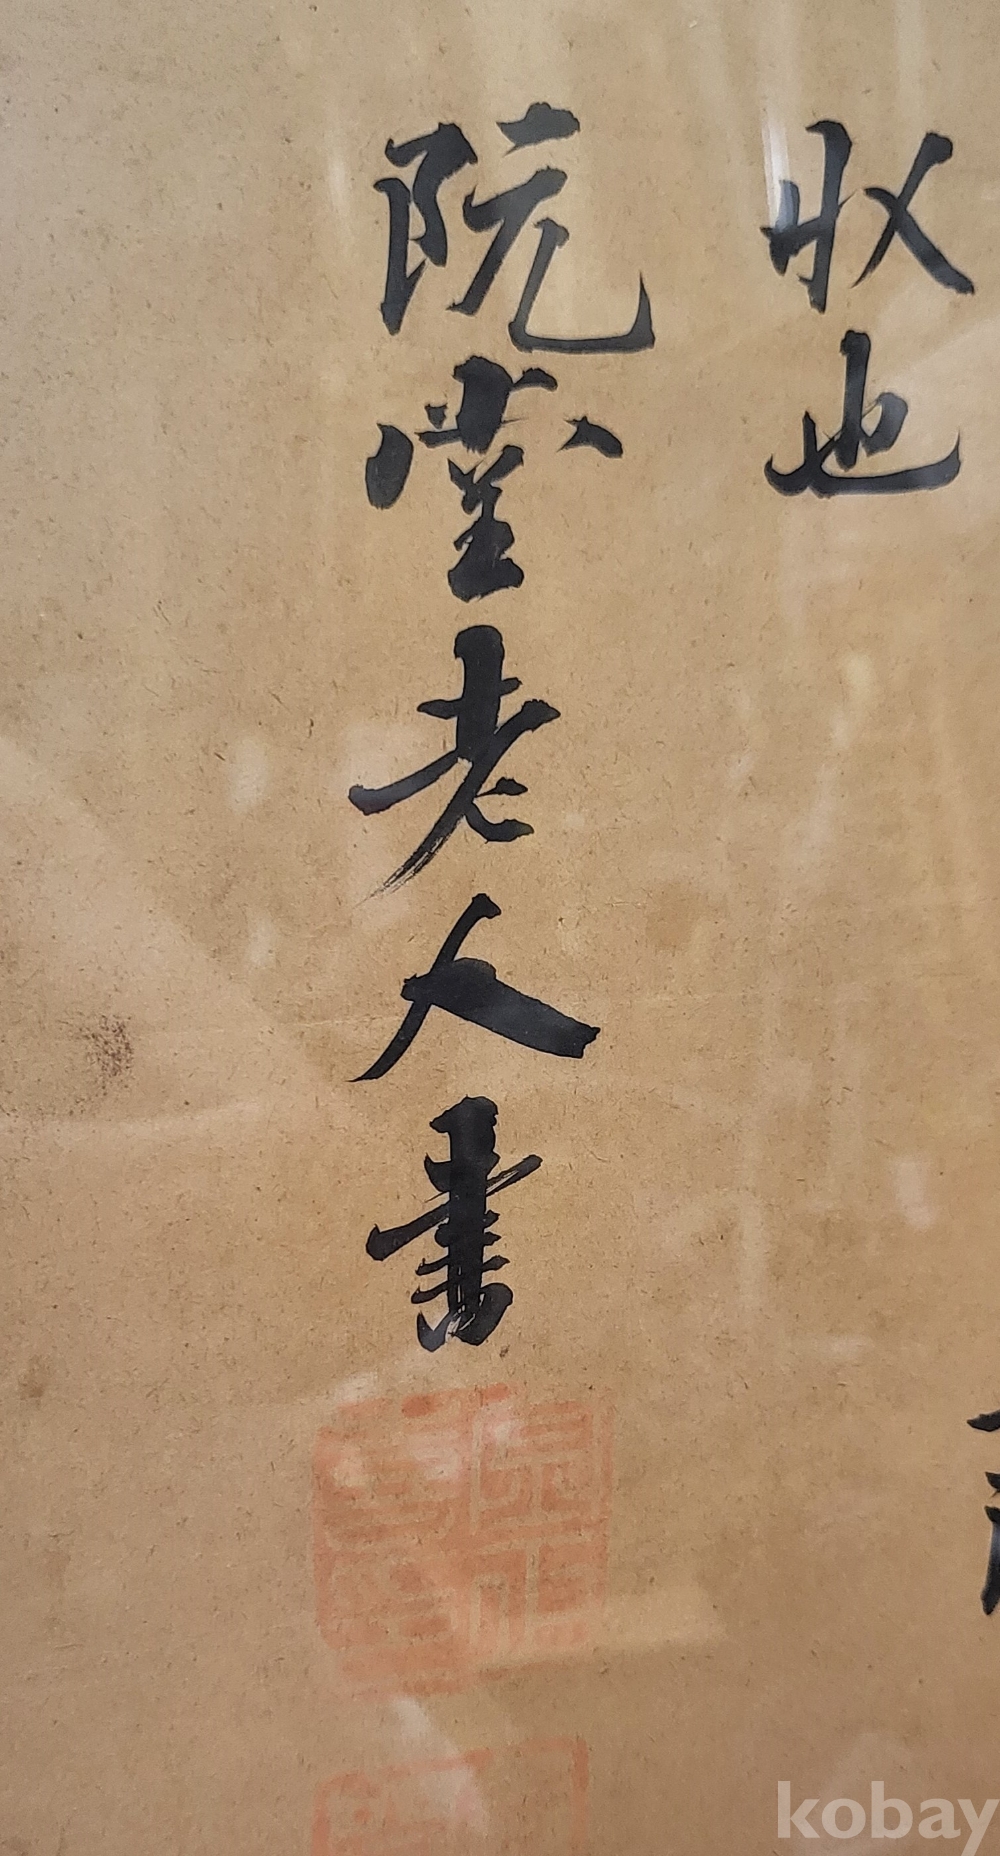 収也
阮堂老人書
kobay